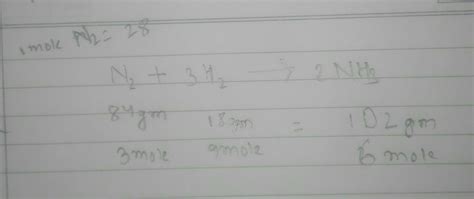 1 mole N2 = 28
N2 + 3H2 → 2NH3
84gm 18gm = 102gm
3mole 9mole 6 mole